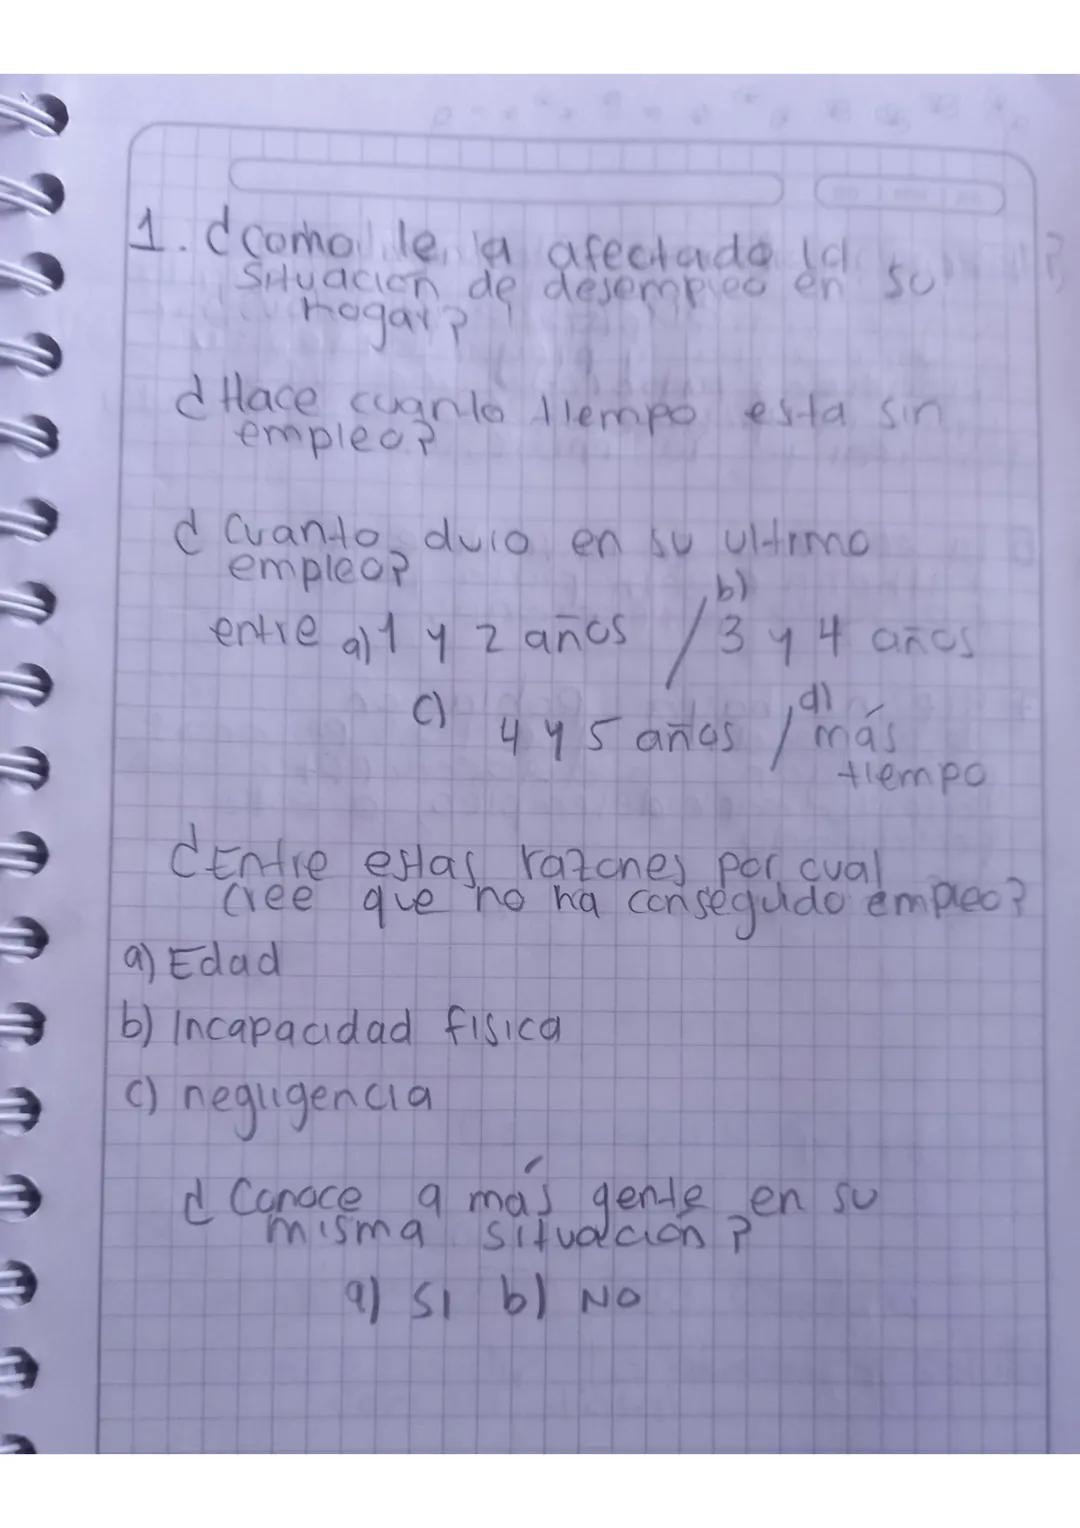 1. ¿como le a afectado la
situación de desempleo en su
hogar?
¿Hace cuanto tiempo esta sin
empleo?
¿Cuanto duro en su ultimo
empleo?
entre a) 1 y 2 años / b) 3 y 4 años
c) 4 y 5 años / d) más
tiempo
¿Entre estas razones por cual
cree que no ha conseguido empleo?
a) Edad
b) Incapacidad fisica
c) negligencia
¿Conoce a más gente en su
misma situación?
a) SI b) NO